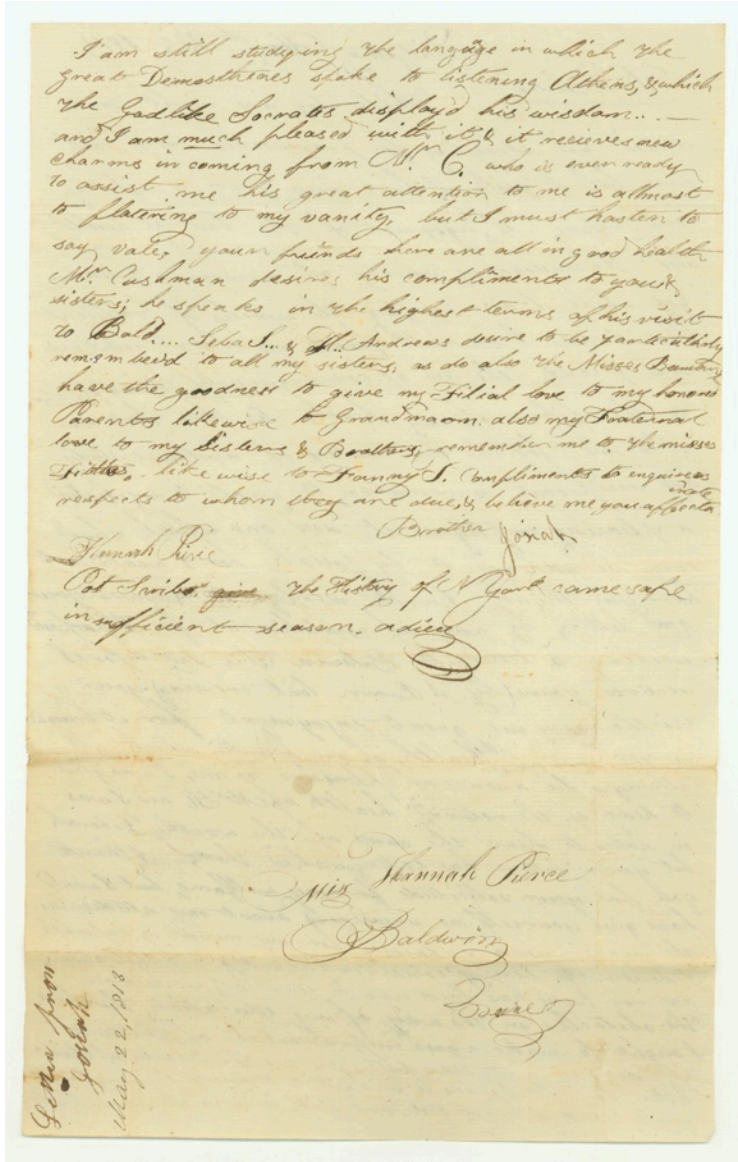 I am still studying the language in which the
great Demosthenes spake to listening Athens, & which
the Godlike Socrates displayd his wisdom.. —
and I am much pleased with it & it recieves new
charms in coming from Mr. C. who is ever ready
to assist me his great attention to me is allmost
to flatering to my vanity, but I must hasten to
say vale, your friends here are all in good health
Mr. Cushman desires his compliments to you &
sisters; he speaks in the highest terms of his visit
to Bald.... Seba S.. & Andrews desire to be particulirly
rememberd to all my sisters, as do also the Misses
have the goodness to give my Filial love to my honord
Parents likewise to Grandmaam. also my Fraternal
love to my Sisters & Brothers, remember me to the misses
likewise to Fanny S. Compliments to enquirers
respects to whom they are due, & believe me your affectionate
Brother Josiah
Hannah Pierce
Pot Scribt, give the History of N York came safe
in sufficient season. adieu
Miss Hannah Pierce
Baldwin
Letter from
Josiah
May 22, 1813